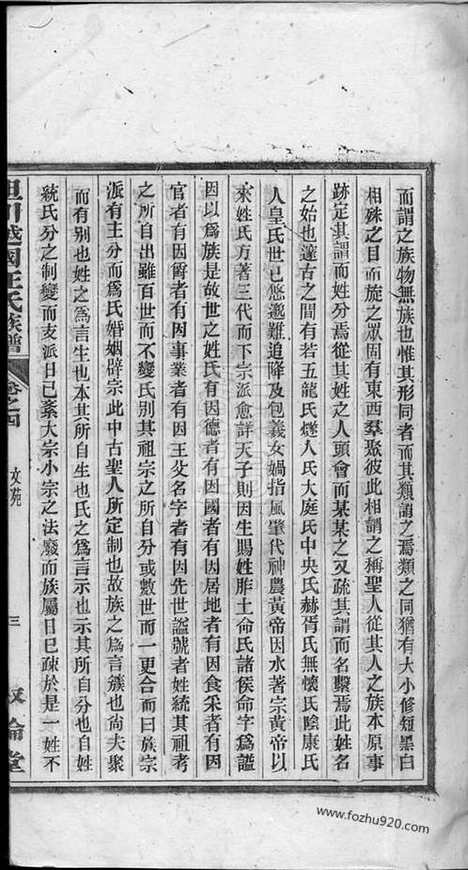 而謂之族物無族也惟其形同者而其類謂之焉類之同猶有大小修短黑白
相殊之目而族之眾固有東西羣聚彼此相謂之稱聖人從其人之族本原事
跡定其謂而姓分焉從其姓之人頭會而某某之又疏其謂而名繫焉此姓名
之始也邃古之間有若五龍氏燧人氏大庭氏中央氏赫胥氏無懷氏陰康氏
人皇氏世已悠邈難追降及包羲女媧指風肇代神農黃帝因水著宗黃帝以
來姓氏方著三代而下宗派愈詳天子則因生賜姓胙土命氏諸侯命字爲謚
因以爲族是故世之姓氏有因德者有因國者有因居地者有因食采者有因
官者有因爵者有因事業者有因王父名字者有因先世謚號者姓統其祖考
之所自出雖百世而不變氏別其祖宗之所自分或數世而一更合而曰族宗
派有主分而爲氏婚姻辟宗此中古聖人所定制也故族之爲言簇也尚夫聚
而有别也姓之爲言生也本其所自生也氏之爲言示也示其所自分也自姓
統氏分之制變而支派日已紊大宗小宗之法廢而族屬日已疎於是一姓不
旦川越國汪氏族譜
卷之四
文苑
三
敘倫堂
www.fozhu920.com